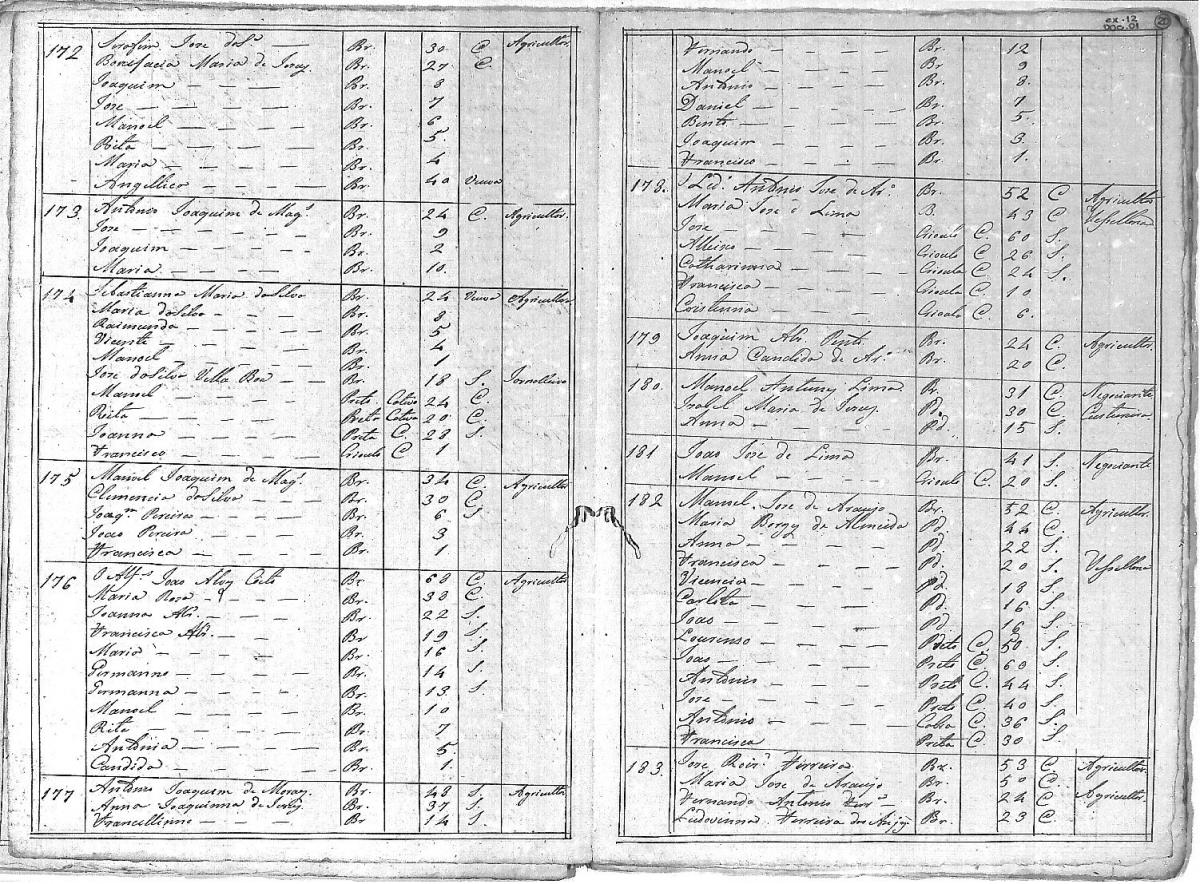 172 Serafim Jose do S.ª Br. 30 C. Agricultor
Bonifacia Maria de Br. 27 C.
Joaquim Br. 8
Jose Br. 7
Manoel Br. 6
Rita Br. 5
Maria Br. 4
Angellica Br. 40 Viuva
173 Antonio Joaquim de Mag.s Br. 24 C. Agricultor
Jose Br. 9
Joaquim Br. 2
Maria Br. 10
174 Sebastianna Maria da Silva Br. 24 Viuva Agricultor
Maria da Silva Br. 8
Raimunda Br. 5
Vicente Br. 4
Manoel Br. 1
Jose da Silva Villa Boa Br. 18 S. Jornalleiro
Manoel Preto Cativo 24 C.
Rita Preta Cativa 20 C.
Joanna Preta C. 28 S.
Francisco Crioulo C 1
175 Manoel Joaquim de Mag.s Br. 34 C. Agricultor
Clemencia da Silva Br. 30 C.
Joaq.m Pereira Br. 6 S
Joao Pereira Br. 3
Francisca Br. 1
176 O Alf.es Joao Alvz Br 68 C. Agricultor
Maria Rosa Br. 38 C.
Joanna Alz. Br. 22 S.
Francisca Alz. Br 19 S.
Maria Br. 16 S.
Germanno Br. 14 S.
Germanna Br. 13 S.
Manoel Br. 10
Rita Br. 7
Antonia Br. 5
Candida Br. 1.
177 Antonio Joaquim de Moraz Br. 48 S. Agricultor
Anna Joaquinna de Br. 37 S.
Francellinno Br. 14 S.
ex-12
doc.01
20
Fernando Br. 12
Manoel Br. 9
Antonio Br. 8
Daniel Br. 7
Bento Br. 5
Joaquim Br. 3.
Francisco Br. 1.
178. Antonio Jose de Ar.º Br. 52 C Agricultor
Maria Jose d Lima B. 43 C Tessellona
Jose Crioulo C. 60 S.
Alleixo Crioulo C 26 S.
Catharinna Crioula C 24 S.
Francisca Crioula C 10
Cristinna Crioula C. 6.
179 Joaquim Alz Pinto Br. 24 C. Agricultor
Anna Candida de Ar.º Br. 20 C.
180. Manoel Antunz Lima Br. 31 C. Negociante
Izabel Maria de Pd. 30 C. Custureira
Anna Pd. 15 S.
181 Joao Jose de Lima Br. 41 S. Negociante
Manoel Crioulo C. 20 S.
182 Manoel Jose de Araujo Br. 52 C. Agricultor
Maria Borgz de Almeida Pd. 44 C.
Anna Pd. 22 S.
Francisca Pd. 20 S. Tessellona
Vicencia Pd. 18 S.
Carlota Pd. 16 S.
Joao Pd 16 S.
Lourenso Preto C. 50 S.
Joao Preto C. 60 S.
Antonio Preto C. 44 S.
Jose Preto C. 40 S.
Antonio Cabra C. 36 S.
Francisca Preta C. 30 S.
183. Jose Roiz Ferreira Br. 53 C Agricultor
Maria Jose de Araujo Br. 50 C.
Fernando Antonio Br. 24 C Agricultor
Ludovinna Ferreira dos Anjz Br. 23 C